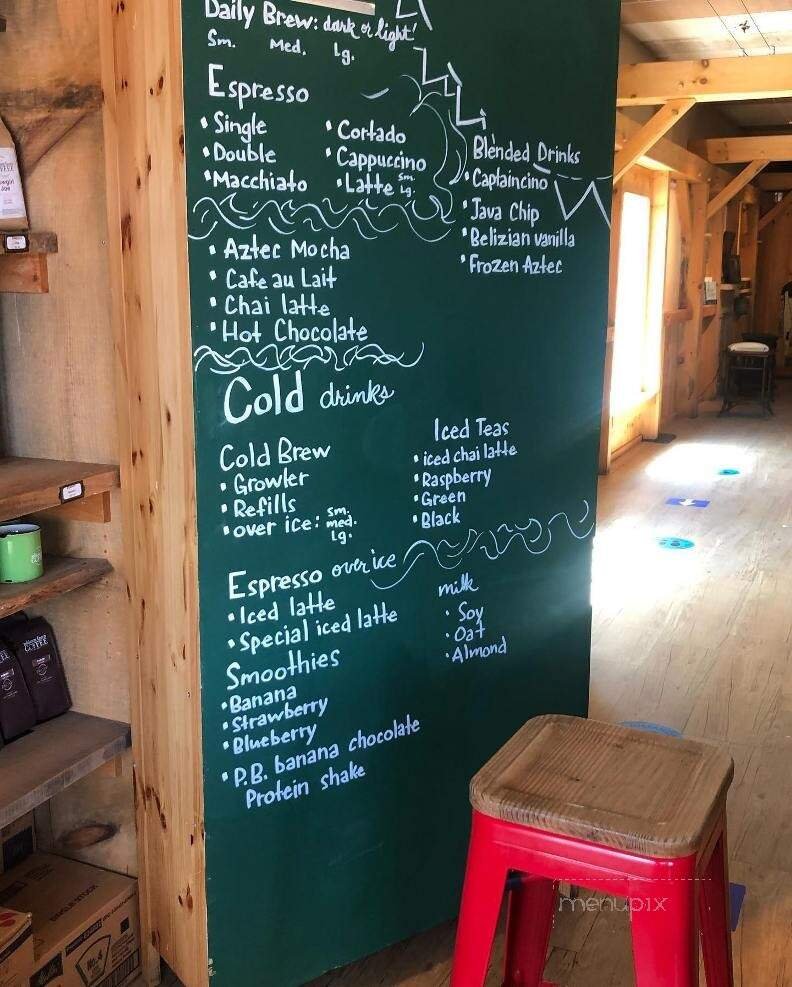 Daily Brew: dark or light!
Sm. Med. Lg.
Espresso
• Single
• Double
• Macchiato
• Cortado
• Cappuccino
• Latte sm. Lg.
Blended Drinks
• Captaincino
• Java Chip
• Belizian vanilla
• Frozen Aztec
• Aztec Mocha
• Cafe au Lait
• Chai latte
• Hot Chocolate
Cold drinks
Cold Brew
• Growler
• Refills
• over ice: sm. med. Lg.
Iced Teas
• iced chai latte
• Raspberry
• Green
• Black
Espresso over ice
• Iced latte
• Special iced latte
milk
• Soy
• Oat
• Almond
Smoothies
• Banana
• Strawberry
• Blueberry
• P.B. banana chocolate
Protein shake
COFFEE
menupix